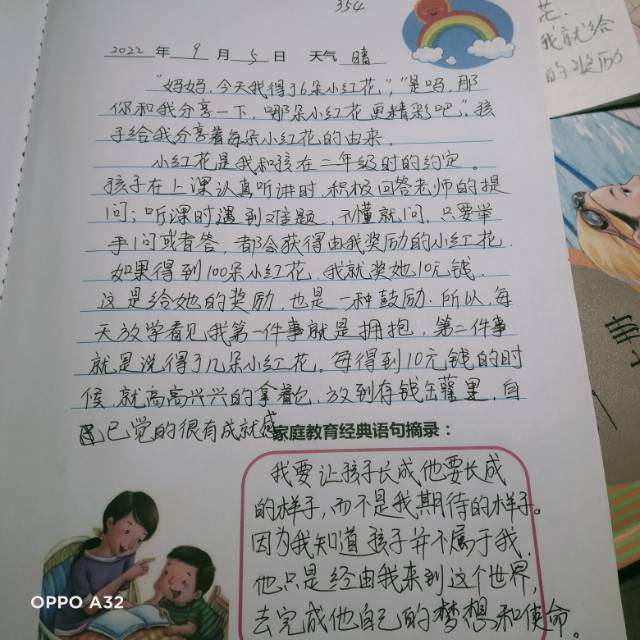 354
2022 年 9 月 5 日 天气 晴
"妈妈,今天我得了6朵小红花","是吗,那
你和我分享一下,哪朵小红花更精彩吧".孩
子给我分享着每朵小红花的由来.
小红花是我和孩在二年级时的约定。
孩子在上课认真听讲时,积极回答老师的提
问;听课时遇到难题,不懂就问,只要举
手问或者答,都会获得由我奖励的小红花.
如果得到100朵小红花,我就奖她10元钱.
这是给她的奖励,也是一种鼓励.所以,每
天放学看见我第一件事就是拥抱,第二件事
就是说得了几朵小红花。每得到10元钱的时
候,就高高兴兴的拿着它,放到存钱缶罐里,自
己觉的很有成就感
家庭教育经典语句摘录:
我要让孩子长成他要长成
的样子,而不是我期待的样子。
因为我知道孩子并不属于我.
他只是经由我来到这个世界,
去完成他自己的梦想和使命。
花.
我就给
的奖励
OPPO A32